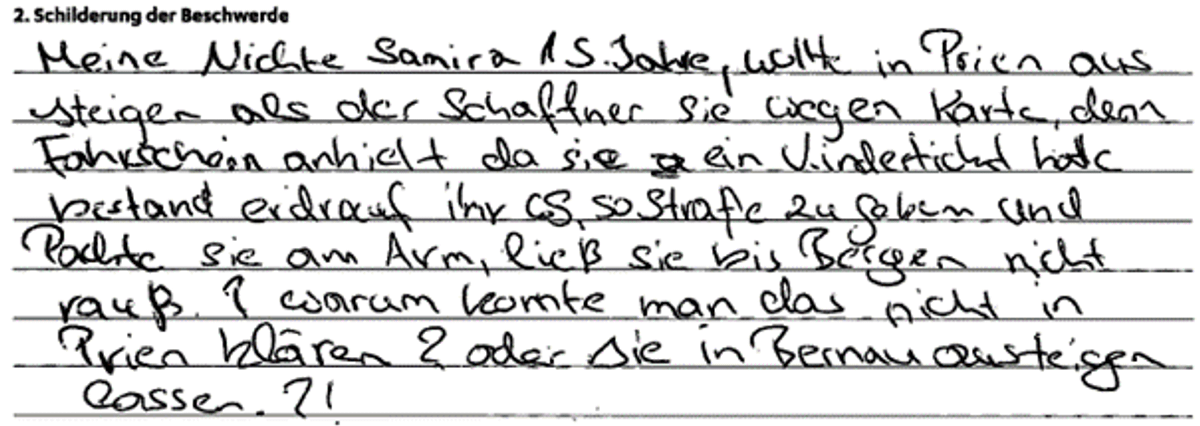 2. Schilderung der Beschwerde
Meine Nichte Samira 15. Jahre, wollte in Prien aus
steigen als der Schaffner sie wegen Karte, dem
Fahrschein anhielt da sie ein Kinderticket hatte
bestand er drauf ihr 65,50 Strafe zu geben und
Packte sie am Arm, ließ sie bis Bergen nicht
rauß. ? warum konnte man das nicht in
Prien klären ? oder sie in Bernau aussteigen
lassen. ?!